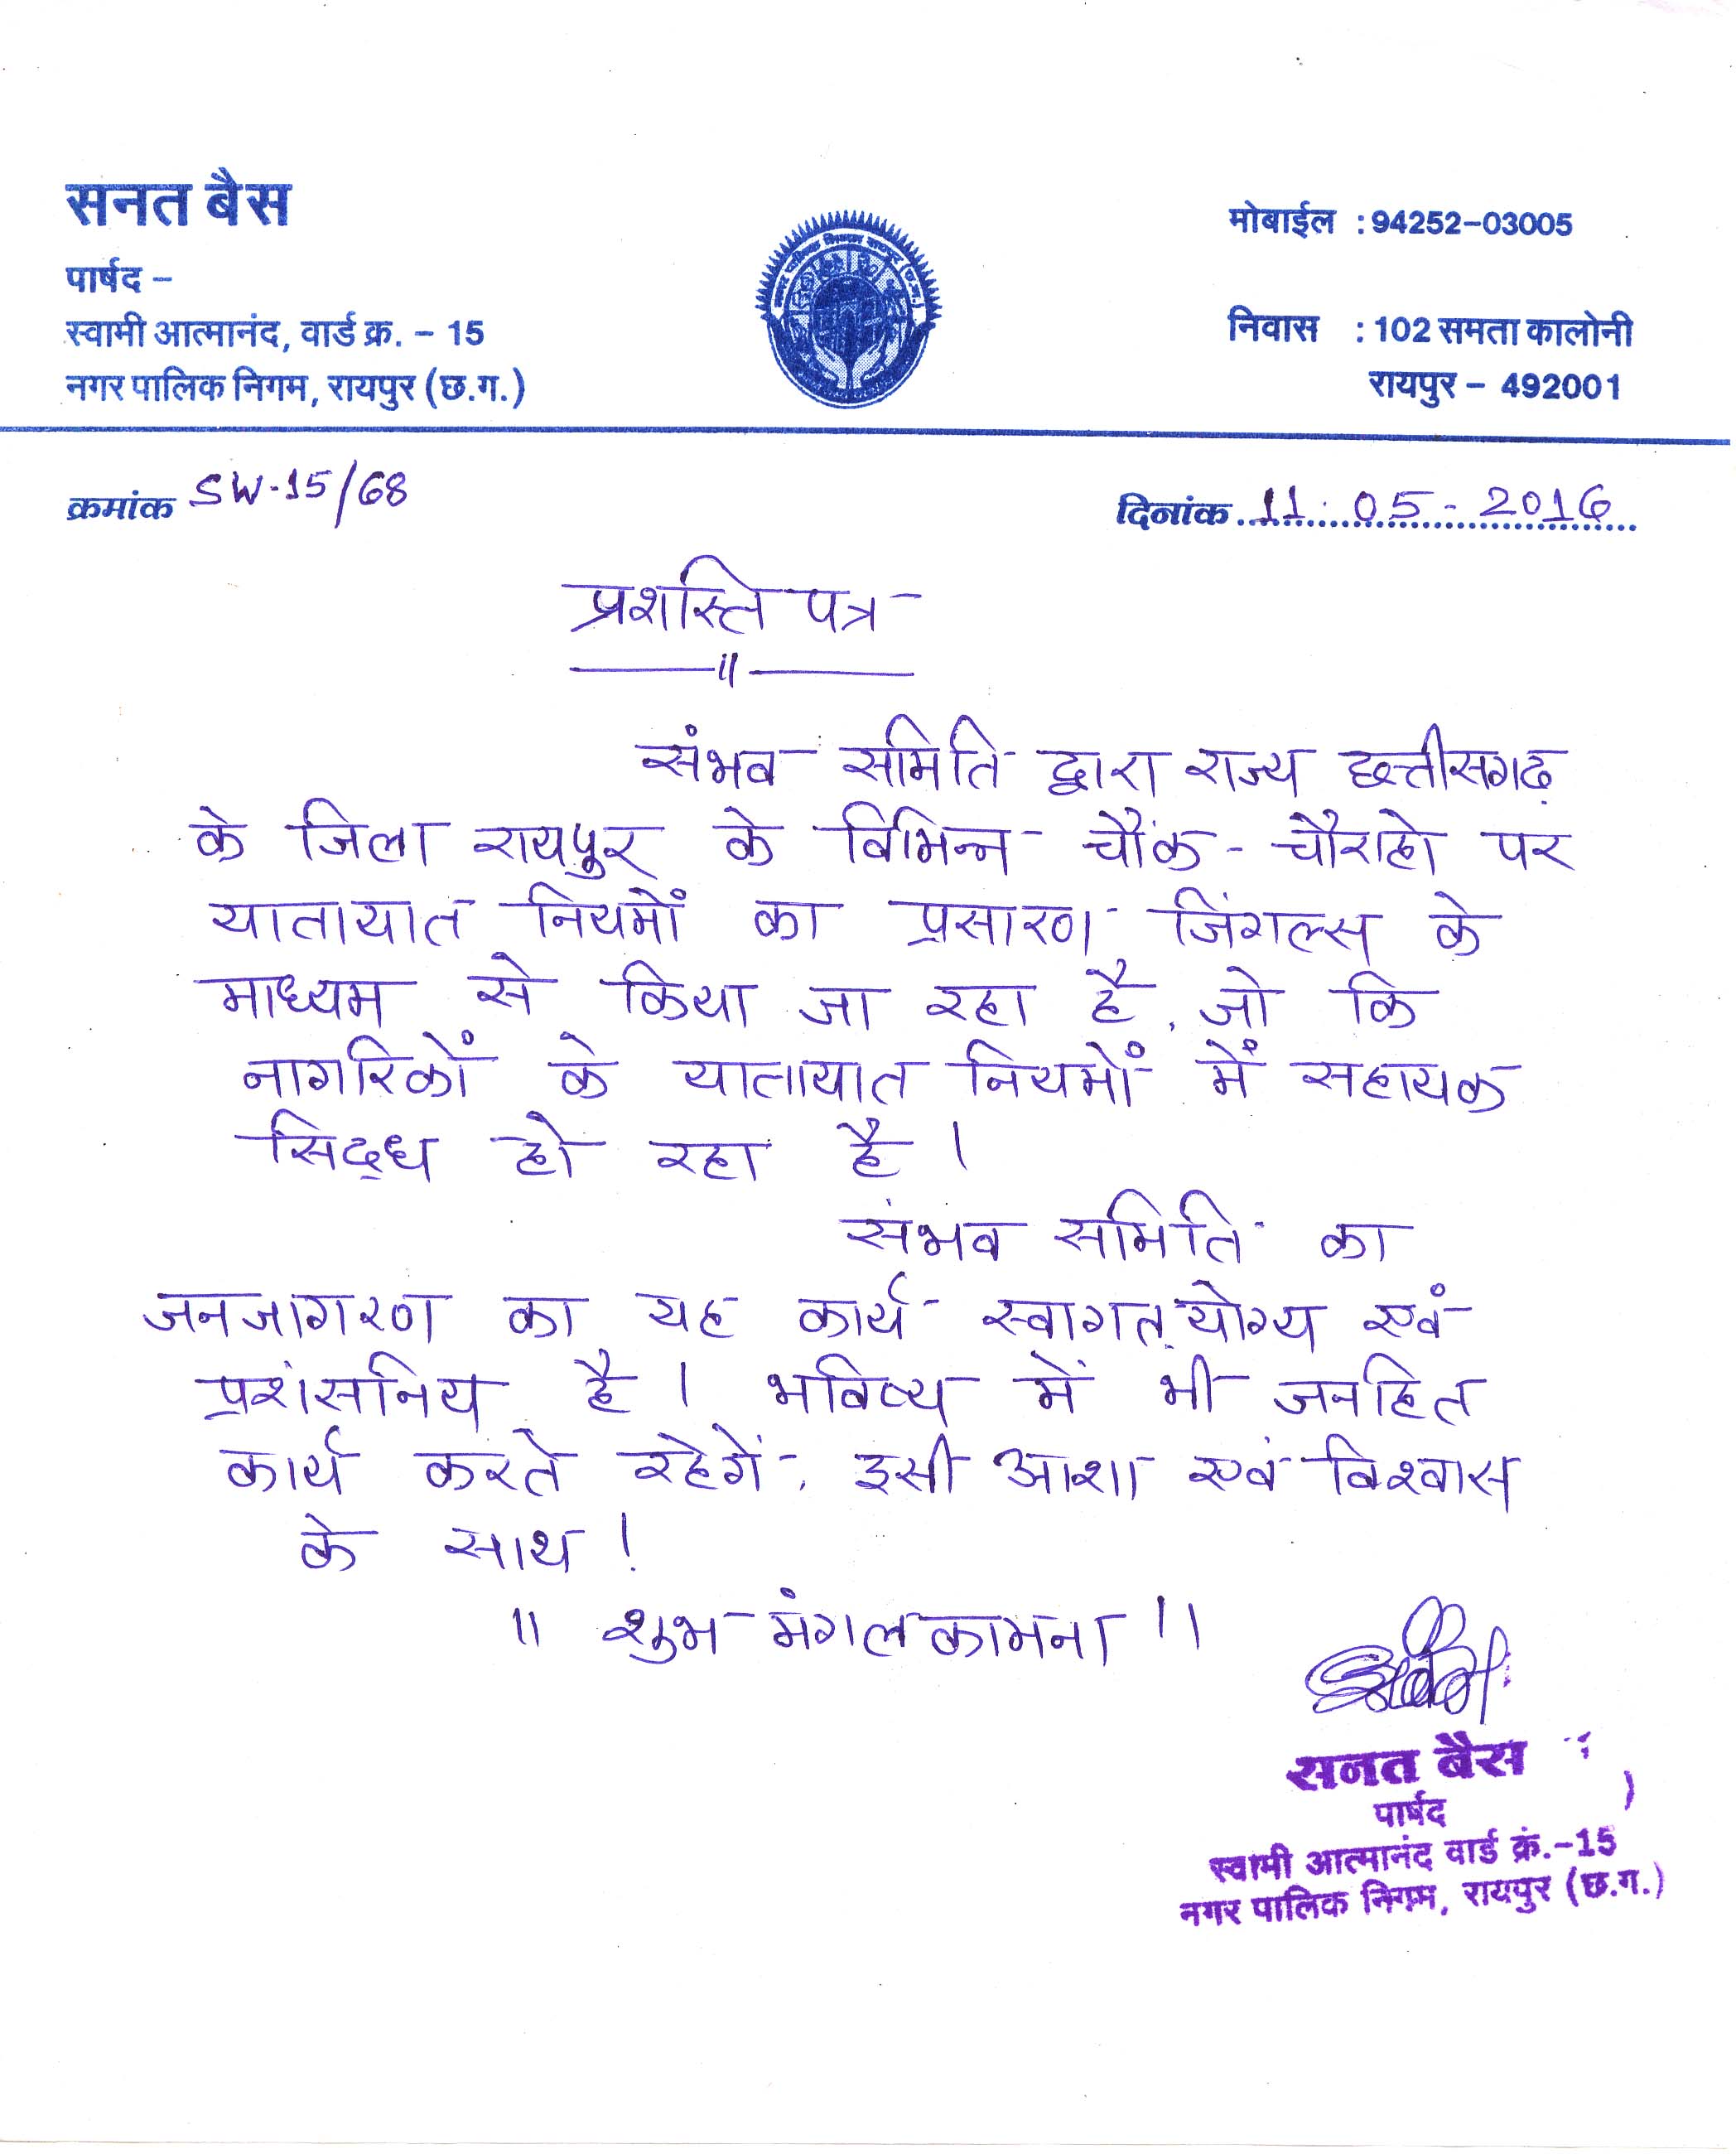 सनत बैस
पार्षद –
स्वामी आत्मानंद, वार्ड क्र. – 15
नगर पालिक निगम, रायपुर (छ.ग.)
मोबाईल : 94252-03005
निवास : 102 समता कालोनी
रायपुर – 492001
क्रमांक SW-15/68
दिनांक 11.05-2016
प्रशस्ति पत्र
—॥—
संभव समिति द्वारा राज्य छत्तीसगढ़
के जिला रायपुर के विभिन्न चौंक-चौराहो पर
यातायात नियमों का प्रसारण जिंगल्स के
माध्यम से किया जा रहा है, जो कि
नागरिकों के यातायात नियमों में सहायक
सिद्ध हो रहा है।
संभव समिति का
जनजागरण का यह कार्य स्वागत योग्य एवं
प्रशंसनिय है। भविष्य में भी जनहित
कार्य करते रहेगें, इसी आशा एवं विश्वास
के साथ!
॥ शुभ मंगल कामना ॥
सनत बैस
पार्षद
स्वामी आत्मानंद वार्ड क्रं.-15
नगर पालिक निगम, रायपुर (छ.ग.)